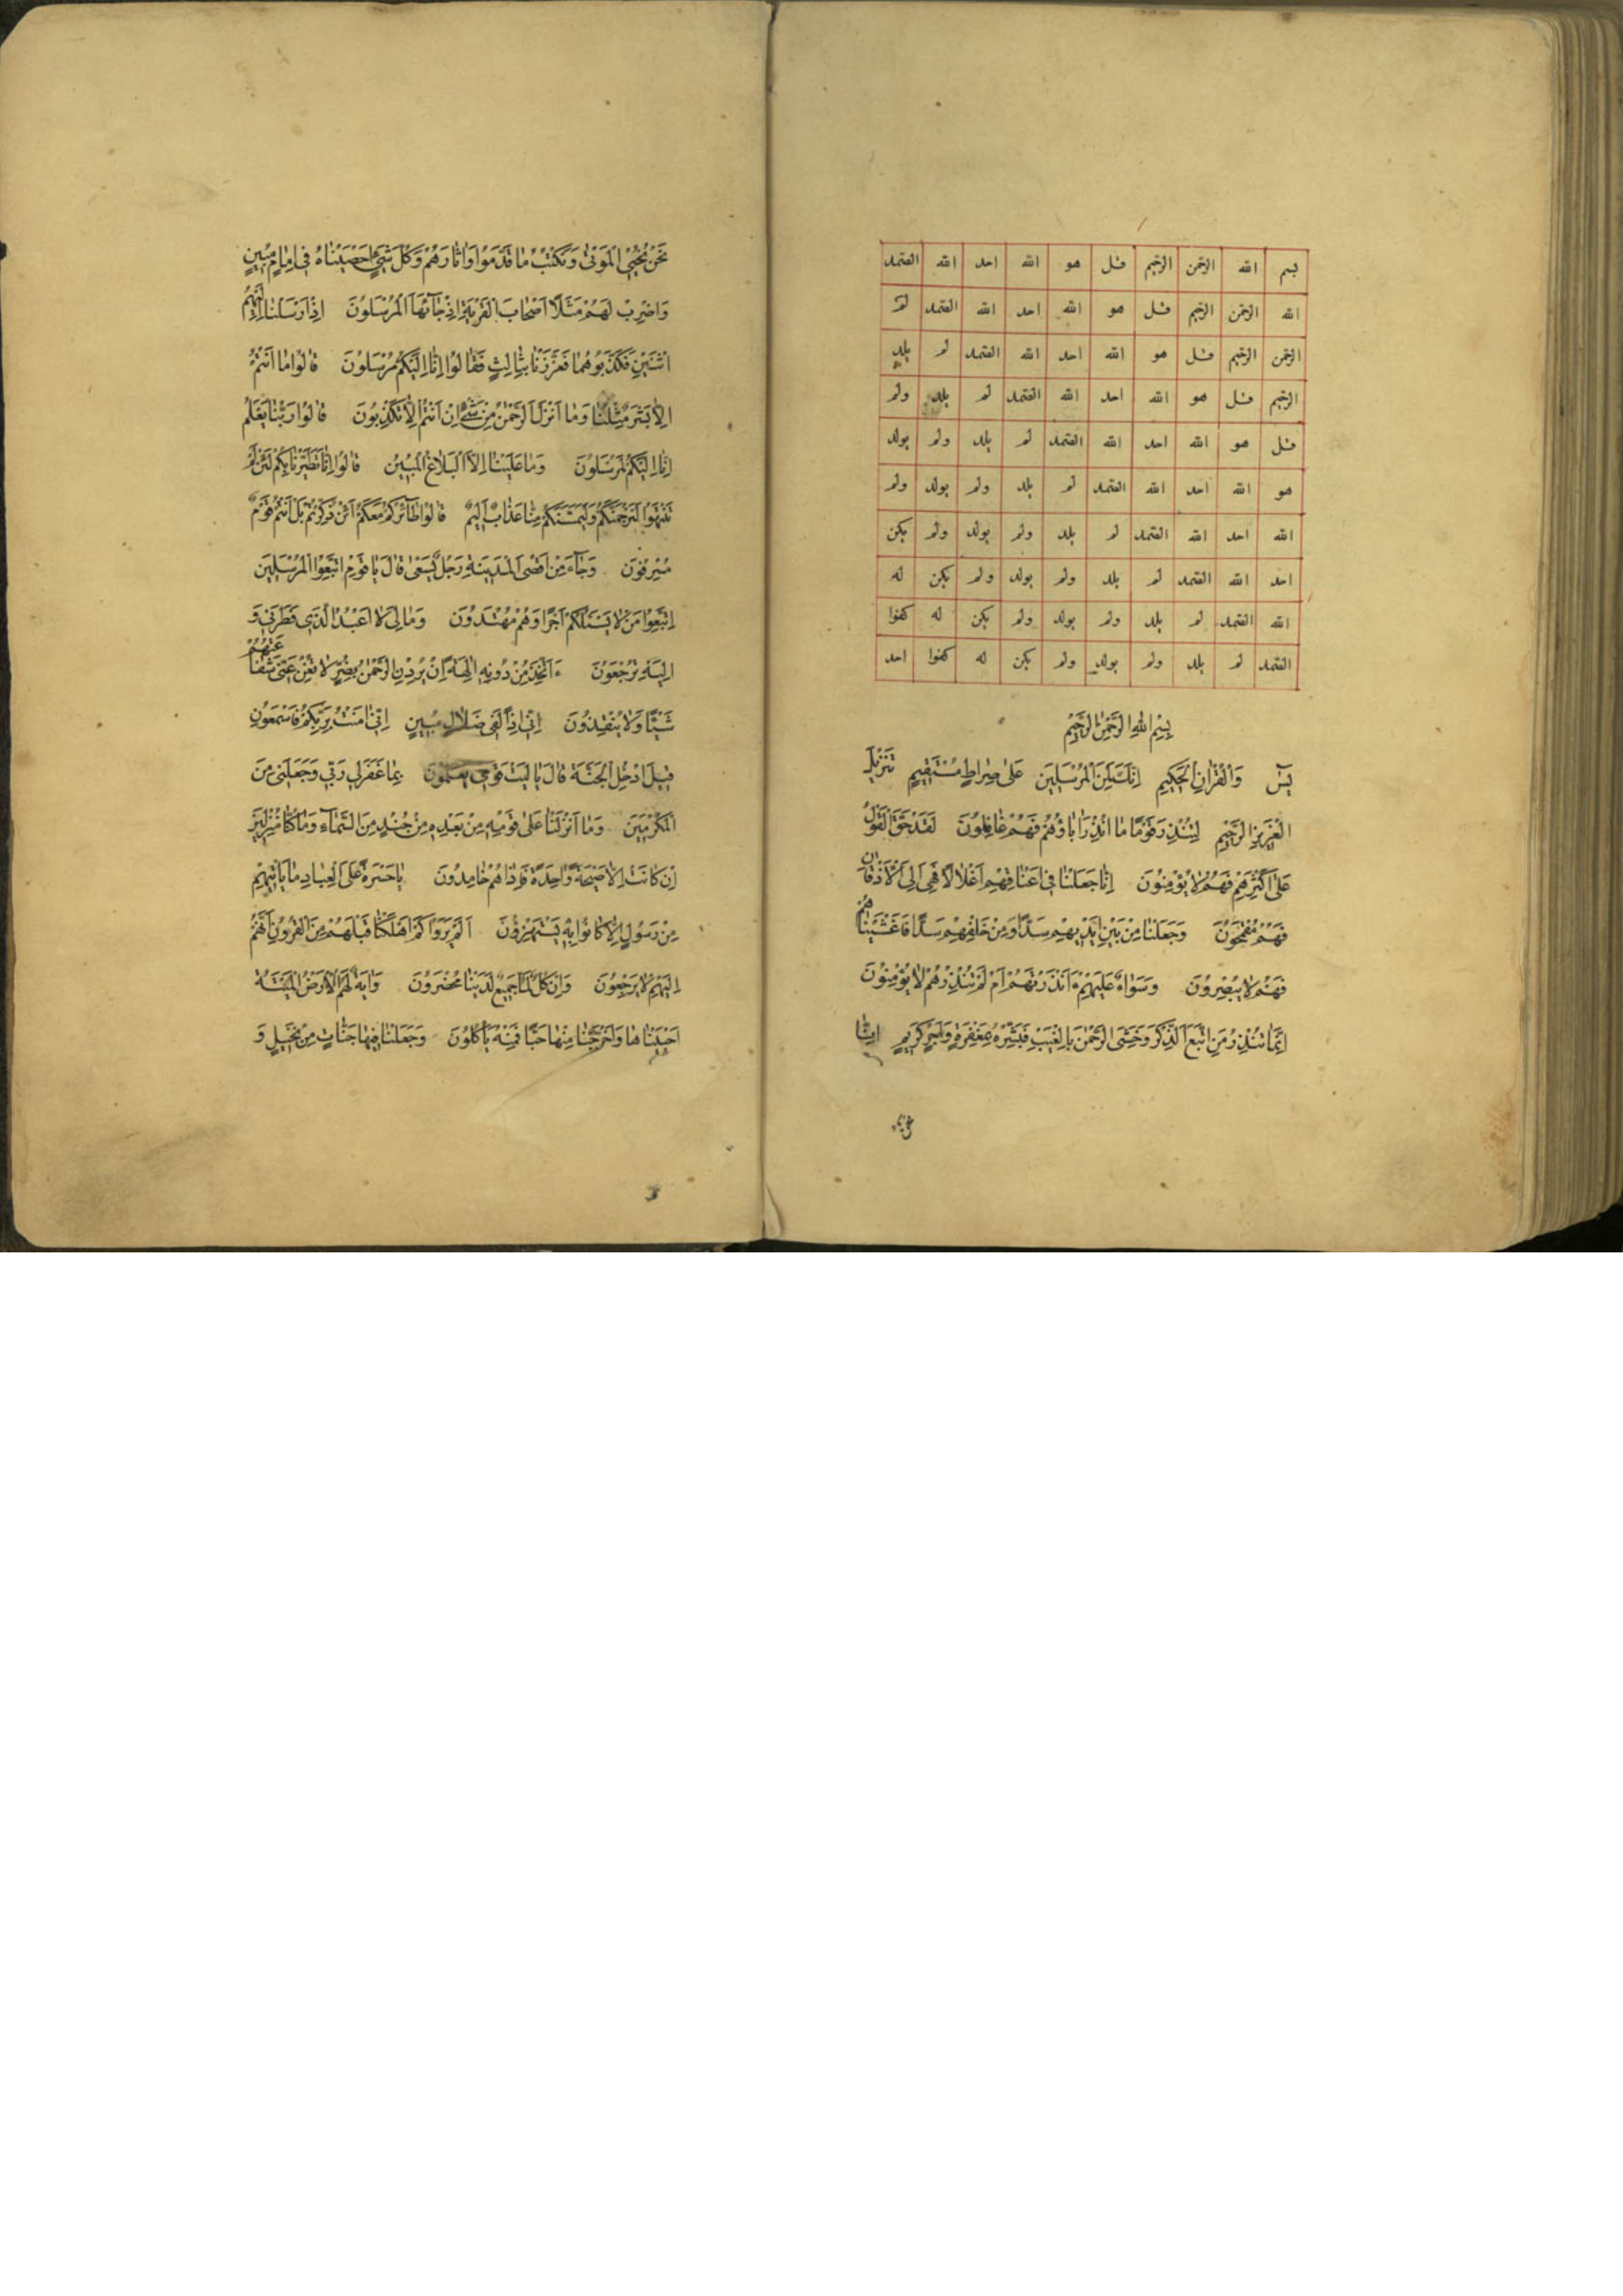 بسم الله الرحمن الرحيم قل هو الله احد الله الصمد
الله الرحمن الرحيم قل هو الله احد الله الصمد لم
الرحمن الرحيم قل هو الله احد الله الصمد لم يلد
الرحيم قل هو الله احد الله الصمد لم يلد ولم
قل هو الله احد الله الصمد لم يلد ولم يولد
هو الله احد الله الصمد لم يلد ولم يولد ولم
الله احد الله الصمد لم يلد ولم يولد ولم يكن
احد الله الصمد لم يلد ولم يولد ولم يكن له
الله الصمد لم يلد ولم يولد ولم يكن له كفوا
الصمد لم يلد ولم يولد ولم يكن له كفوا احد
بِسْمِ اللهِ الرَّحْمٰنِ الرَّحِيْمِ
يٰسٓ وَالْقُرْاٰنِ الْحَكِيْمِ اِنَّكَ لَمِنَ الْمُرْسَلِيْنَ عَلٰى صِرٰاطٍ مُسْتَقِيْمٍ تَنْزِيْلَ
الْعَزِيْزِ الرَّحِيْمِ لِتُنْذِرَ قَوْمًا مٰا اُنْذِرَ اٰبٰاؤُهُمْ فَهُمْ غٰافِلُوْنَ لَقَدْ حَقَّ الْقَوْلُ
عَلٰى اَكْثَرِهِمْ فَهُمْ لاٰ يُؤْمِنُوْنَ اِنّٰا جَعَلْنٰا فِيْ اَعْنٰاقِهِمْ اَغْلاٰلاً فَهِيَ اِلَى الْاَذْقٰانِ
فَهُمْ مُقْمَحُوْنَ وَجَعَلْنٰا مِنْ بَيْنِ اَيْدِيْهِمْ سَدًّا وَمِنْ خَلْفِهِمْ سَدًّا فَاَغْشَيْنٰاهُمْ
فَهُمْ لاٰ يُبْصِرُوْنَ وَسَوٰاءٌ عَلَيْهِمْ ءَاَنْذَرْتَهُمْ اَمْ لَمْ تُنْذِرْهُمْ لاٰ يُؤْمِنُوْنَ
اِنَّمٰا تُنْذِرُ مَنِ اتَّبَعَ الذِّكْرَ وَخَشِيَ الرَّحْمٰنَ بِالْغَيْبِ فَبَشِّرْهُ بِمَغْفِرَةٍ وَاَجْرٍ كَرِيْمٍ اِنّٰا
نَحْنُ نُحْيِي الْمَوْتٰى وَنَكْتُبُ مٰا قَدَّمُوْا وَاٰثٰارَهُمْ وَكُلَّ شَيْءٍ اَحْصَيْنٰاهُ فِيْ اِمٰامٍ مُبِيْنٍ
وَاضْرِبْ لَهُمْ مَثَلًا اَصْحٰابَ الْقَرْيَةِ اِذْ جٰآئَهَا الْمُرْسَلُوْنَ اِذْ اَرْسَلْنٰا اِلَيْهِمُ
اثْنَيْنِ فَكَذَّبُوْهُمٰا فَعَزَّزْنٰا بِثٰالِثٍ فَقٰالُوْا اِنّٰا اِلَيْكُمْ مُرْسَلُوْنَ قٰالُوْا مٰا اَنْتُمْ
اِلاّٰ بَشَرٌ مِثْلُنٰا وَمٰا اَنْزَلَ الرَّحْمٰنُ مِنْ شَيْءٍ اِنْ اَنْتُمْ اِلاّٰ تَكْذِبُوْنَ قٰالُوْا رَبُّنٰا يَعْلَمُ
اِنّٰا اِلَيْكُمْ لَمُرْسَلُوْنَ وَمٰا عَلَيْنٰا اِلاَّ الْبَلاٰغُ الْمُبِيْنُ قٰالُوْا اِنّٰا تَطَيَّرْنٰا بِكُمْ لَئِنْ لَمْ
تَنْتَهُوْا لَنَرْجُمَنَّكُمْ وَلَيَمَسَّنَّكُمْ مِنّٰا عَذٰابٌ اَلِيْمٌ قٰالُوْا طٰآئِرُكُمْ مَعَكُمْ اَئِنْ ذُكِّرْتُمْ بَلْ اَنْتُمْ قَوْمٌ
مُسْرِفُوْنَ وَجٰآءَ مِنْ اَقْصَى الْمَدِيْنَةِ رَجُلٌ يَسْعٰى قٰالَ يٰا قَوْمِ اتَّبِعُوا الْمُرْسَلِيْنَ
اِتَّبِعُوْا مَنْ لاٰ يَسْئَلُكُمْ اَجْرًا وَهُمْ مُهْتَدُوْنَ وَمٰا لِيَ لاٰ اَعْبُدُ الَّذِيْ فَطَرَنِيْ وَ
اِلَيْهِ تُرْجَعُوْنَ ءَاَتَّخِذُ مِنْ دُوْنِهِ اٰلِهَةً اِنْ يُرِدْنِ الرَّحْمٰنُ بِضُرٍّ لاٰ تُغْنِ عَنِّيْ شَفٰاعَتُهُمْ
شَيْئًا وَلاٰ يُنْقِذُوْنَ اِنِّيْ اِذًا لَفِيْ ضَلاٰلٍ مُبِيْنٍ اِنِّيْ اٰمَنْتُ بِرَبِّكُمْ فَاسْمَعُوْنِ
قِيْلَ ادْخُلِ الْجَنَّةَ قٰالَ يٰا لَيْتَ قَوْمِيْ يَعْلَمُوْنَ بِمٰا غَفَرَ لِيْ رَبِّيْ وَجَعَلَنِيْ مِنَ
الْمُكْرَمِيْنَ وَمٰا اَنْزَلْنٰا عَلٰى قَوْمِهِ مِنْ بَعْدِهِ مِنْ جُنْدٍ مِنَ السَّمٰآءِ وَمٰا كُنّٰا مُنْزِلِيْنَ
اِنْ كٰانَتْ اِلاّٰ صَيْحَةً وٰاحِدَةً فَاِذٰا هُمْ خٰامِدُوْنَ يٰا حَسْرَةً عَلَى الْعِبٰادِ مٰا يَاْتِيْهِمْ
مِنْ رَسُوْلٍ اِلاّٰ كٰانُوْا بِهِ يَسْتَهْزِؤُنَ اَلَمْ يَرَوْا كَمْ اَهْلَكْنٰا قَبْلَهُمْ مِنَ الْقُرُوْنِ اَنَّهُمْ
اِلَيْهِمْ لاٰ يَرْجِعُوْنَ وَاِنْ كُلٌّ لَمّٰا جَمِيْعٌ لَدَيْنٰا مُحْضَرُوْنَ وَاٰيَةٌ لَهُمُ الْاَرْضُ الْمَيْتَةُ
اَحْيَيْنٰاهٰا وَاَخْرَجْنٰا مِنْهٰا حَبًّا فَمِنْهُ يَأْكُلُوْنَ وَجَعَلْنٰا فِيْهٰا جَنّٰاتٍ مِنْ نَخِيْلٍ وَ